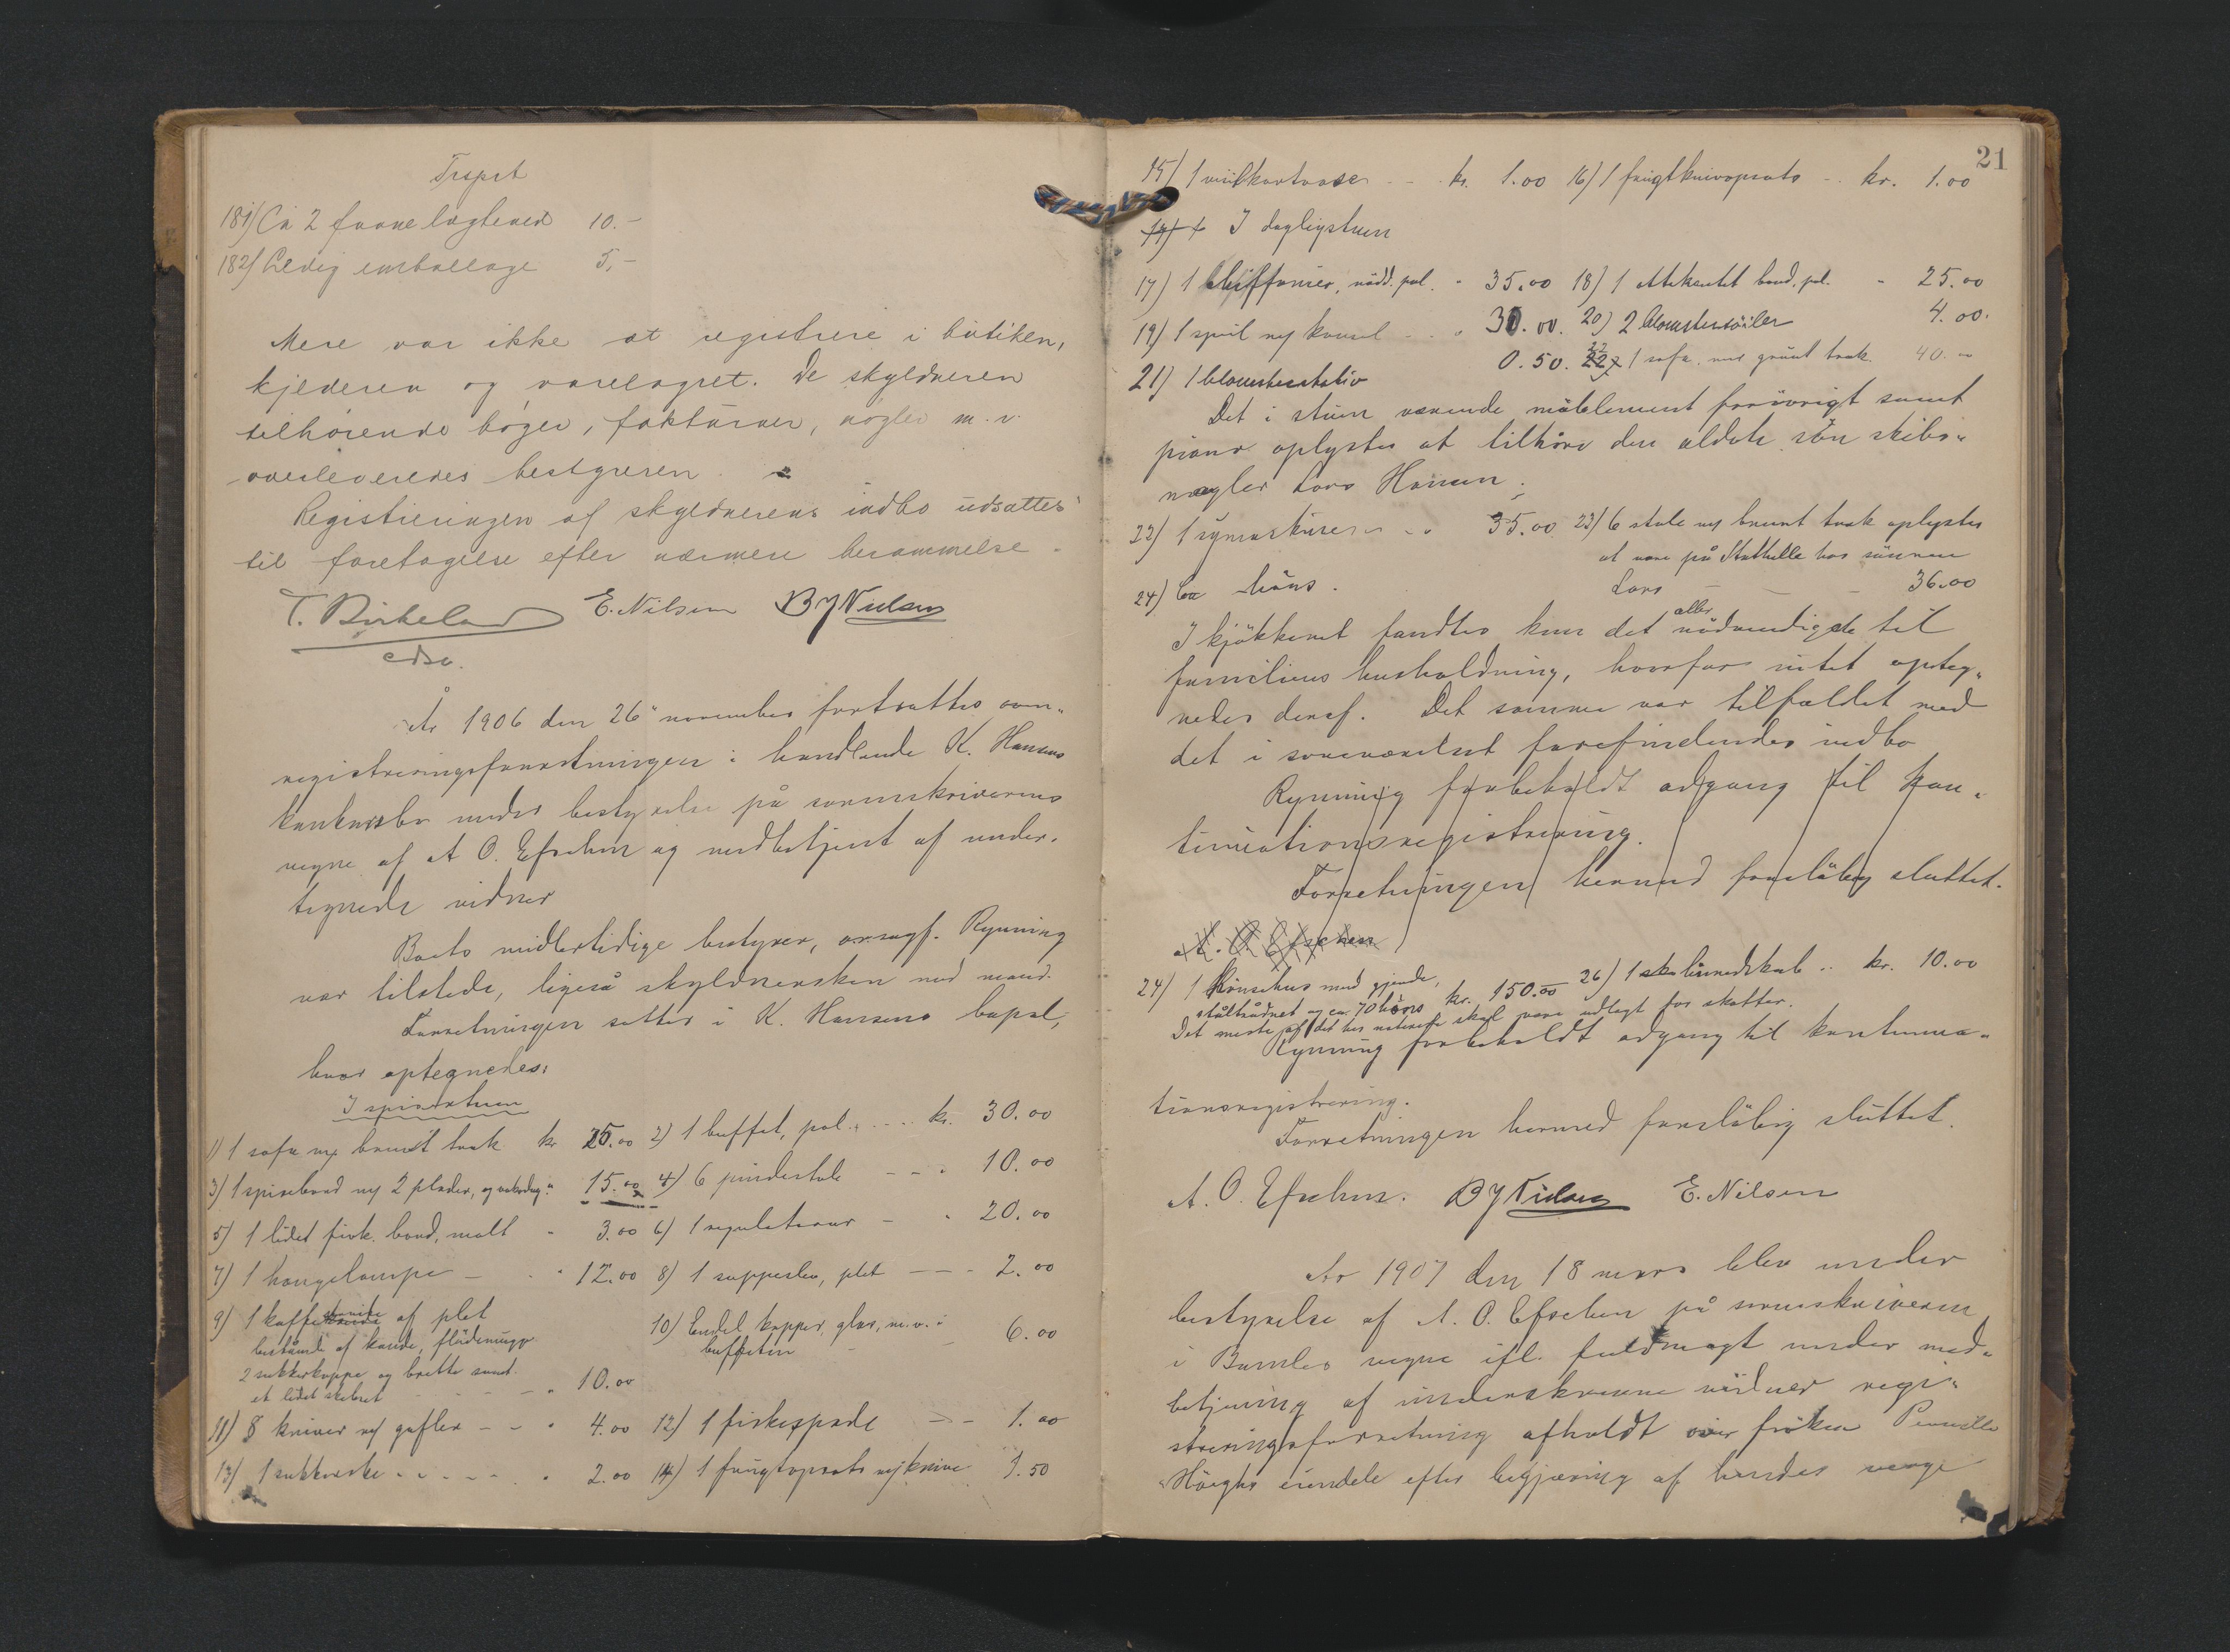 181) Ca 2 favne lægteved 10.-
182) Ledig emballage 5,-
Mere var ikke at registrere i butiken,
kjelderen og varelagret. De skyldneren
tilhørende bøger, fakturaer, nøgler m. v.
overleveredes bestyreren.
Registreringen af skyldnerens indbo udsattes
til foretagelse efter nærmere berammelse.
T. Birkeland E. Nilsen B J Nielsen
edsv.
År 1906 den 26" november fortsattes
registreringsforretningen i handlende K. Hansens
konkursbo under bestyrelse på sorenskriverens
vegne af A O. Efschen og medbetjent af under-
tegnede vidner
Boets midlertidige bestyrer, ovrsagf. Rynning
var tilstede, ligeså skyldnersken med mand.
Forretningen sattes i K. Hansens bopæl,
hvor optegnedes:
I spisestuen
1) 1 sofa m/ brunt træk kr 25.00 2) 1 buffet, pol. kr. 30.00
3) 1 spisebord m/ 2 plader, og voksdug " 15.00 4) 6 pindestole 10.00
5) 1 lidet firk. bord, malt 3.00 6) 1 regulatorur 20.00
7) 1 hængelampe 12.00 8) 1 suppeslev, plet 2.00
9) 1 kaffe af plet
bestående af kande, flødemugge
10) Endel kopper, glas, m.v. i
buffeten 6.00
2 sukkerkoppe og brette samt
et lidet skebret 10.00
11) 8 kniver m/ gafler 4.00 12) 1 fiskespade 1.00
13) 1 sukkerske 2.00 14) 1 frugtopsats m/ knive 1.50
21
15) 1 visitkortvase kr. 1.00 16) 1 frugtknivopsats kr. 1.00
I dagligstuen
17) 1 Chiffonier, nødd. pol. 35.00 18) 1 ottekantet bord, pol. 25.00
19) 1 speil m/ konsol 30.00. 20) 2 blomstersöiler 4.00.
21) 1 blomsterstativ 0.50. 22 1 sofa med grønt træk. 40.00
Det i stuen værende møblement forøvrigt samt
piano oplystes at tilhøre den ældste sön skibs-
mægler Lars Hansen.
22) 1 symaskine 35.00 23) 6 stole m/ brunt træk oplystes
at være på Stathelle hos sönnen
Lars 36.00
24) Ca höns.
I kjökkenet fandtes kun det aller nödvendigste til
familiens husholdning, hvorfor intet opteg-
nedes deraf. Det samme var tilfældet med
det i soveværelset forefindendes indbo
Rynning forbeholdt adgang til kon-
tinuationsregistrering.
Forretningen hermed foreløbig sluttet.
A. O. Efschen
24) 1 Hönsehus med gjerde,
ståltrådnet og ca. 70 höns kr. 150.00 26) 1 linnedskab kr. 10.00
Det meste af det her noterte skal være udlagt for skatter.
Rynning forbeholdt adgang til kontinua-
tionsregistrering.
Forretningen hermed foreløbig sluttet.
A. O. Efschen. B J Nielsen E. Nilsen
År 1907 den 18 mars blev under
bestyrelse af A. O. Efschen på sorenskriveren
i Bambles vegne ifl. fuldmagt under med-
betjening af underskrevne vidner regi-
streringsforretning afholdt over frøken Pernille
Höeghs eiendele efter begjæring af hendes verge